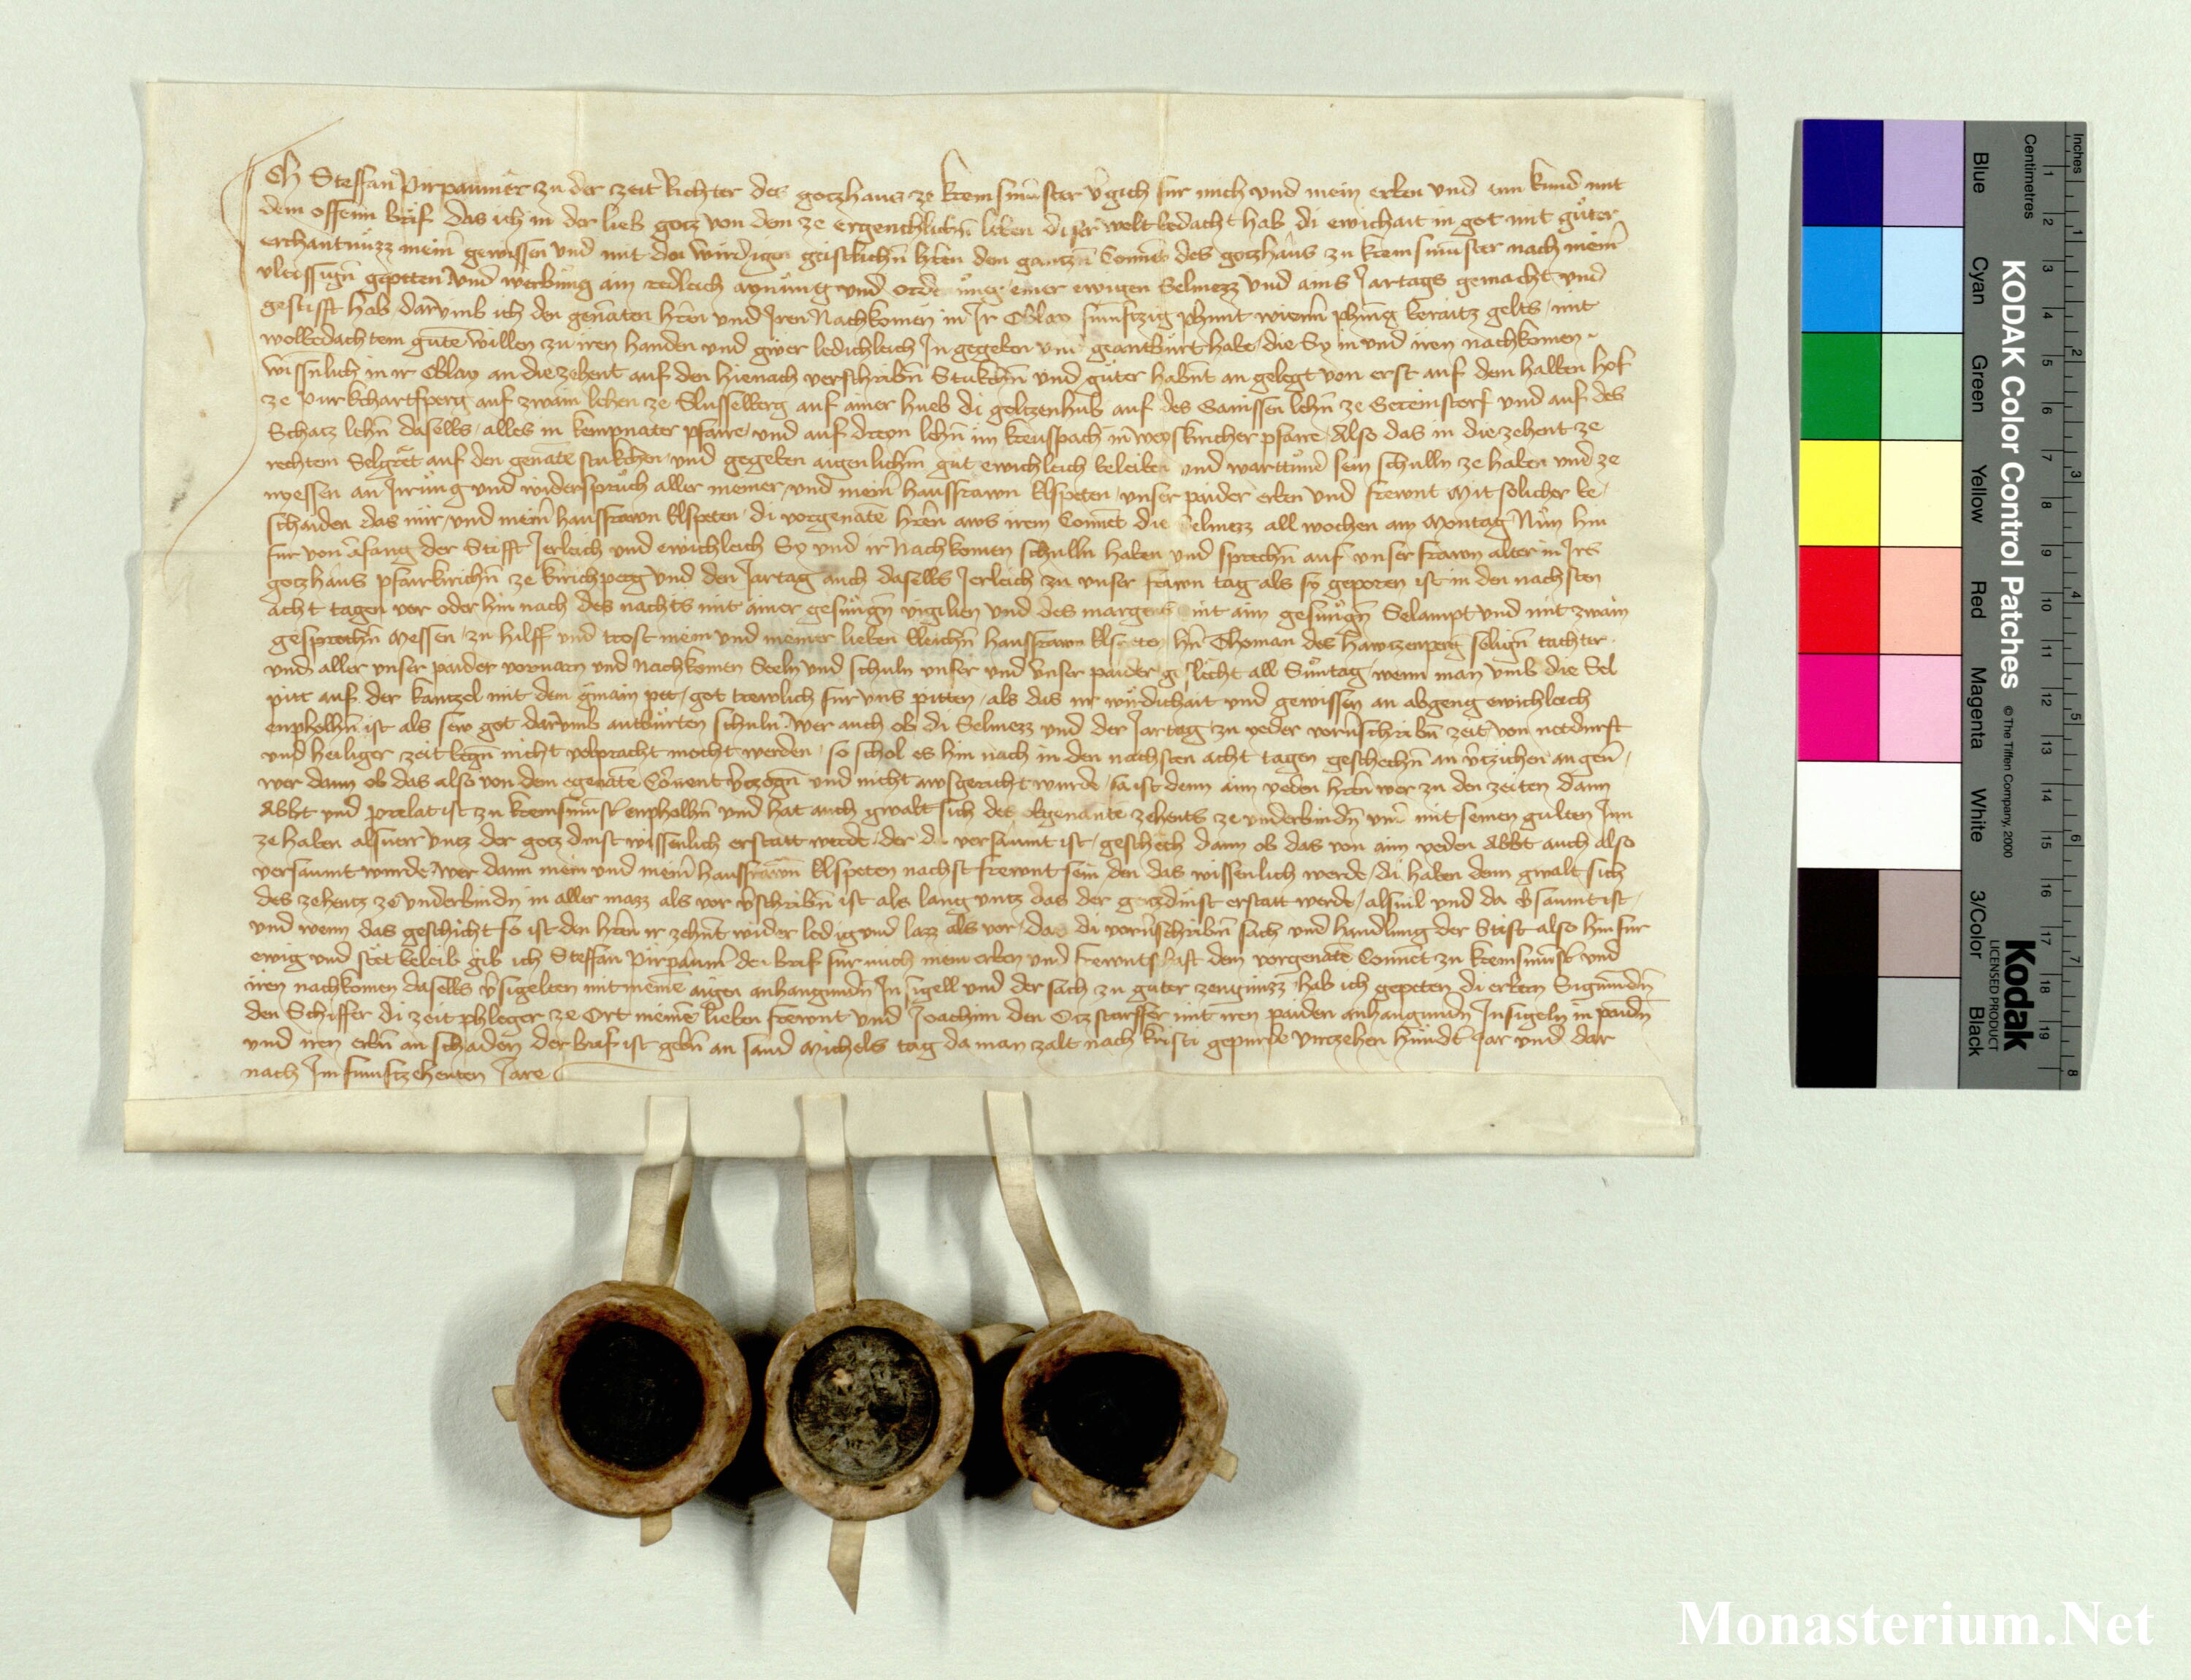 Ich Steffan Pirpaumer zu der zeit Richter des gotzhaus ze kremsmunster vgich fur mich und mein erben und tun kund mit
dem offenn brif das ich in der lieb gotz von dem ze ergenchlichn leben diser welt bedacht hab di ewichait in got mit guter
erchantnuzz meins gewissen und mit den wirdigen geistlichn hren dem gantzn Conuent des gotzhaus zu kremsmunster nach meim
vleissign gepotten und werbung ain redleich aynung und ordenung einer ewigen Selmezz und ains Jartags gemacht und
gestifft hab darumb ich den genaten hren und Iren Nachkomen in Ir Oblay fumftzig phunt wienn phning beraitz gelts mit
wolbedachtem gute willen zu iren handen und gwer ledichleich In gegeben und geantburt habe die Sy in und iren nachkomen
wissnlich in ir Oblay an die zehent auf den hienach verschribn Stukchn und guter habnt an gelegt von erst auf dem halben hof
ze purkchartsperg auf zwain lehen ze Slusselberg auf ainer hueb di goltzenhub auf des Ganissen lehn ze Steinstorf und auf des
Schatz lehn daselbs alles in kempnater pfarre und auf dreyn lehn im kreuspach in weyskiricher pfarre Also das in die zehent ze
rechtem Selgret auf den genate stukchen und gegeben aigenlichm gut ewichleich beleiben und warttund sein schulln ze haben und ze
nyessen an Irrung und widerspruch aller meiner und meinr hausfrawn Elspeten unser paider erben und frewnt Mit solicher be
schaiden das mir und meinr hausfrawn Elspeten di vorgenate hren aws irem Conuet die Selmezz all wochen am Montag Nun hin
fur von afang der Stifft Jerleich und ewichleich Sy und ir Nachkomen schulln haben und sprechn auf unser frawn alter in Irs
gotzhaus pfarrkirichn ze kirichperg und den Jartag auch daselbs Jerleich zu unser frawn tag als sy geporen ist in den nachsten
acht tagen vor oder hin nach des nachts mit ainer gesungn vigilien und des margens mit aim gesungn Selampt und mit zwain
gesprochn Messen zu hilff und trost mein und meiner lieben Eleichn hausfrawn Elspeten hrn Thoman des hawtzenperg seligen tachter
und aller unser paider vorvarn und nachkomen Seeln und schuln unser und unser paider geslecht all Suntag wenn man umb die Sel
pitt auf der kantzel mit dem gmain pet got trewlich fur uns pitten als das irr wirdichait und gewissen an abgeng ewichleich
enpholhn ist als sew got darumb antburten schuln Wer auch ob di Selmezz und der Jartag zu yeder vorvschribn zeit von notdurft
und heiliger zeit begn nicht volpracht mocht werden so schol es hin nach in den nachsten acht tagen geschechn an vtzichen angeu
wer dann ob das also von dem egenate Couent vtzogn und nicht awsgericht wurde so ist denn aim yeden hren wer zu den zeiten dann
Abbt und prelat ist zu kremsmunst enpholhn und hat auch gwalt sich des obgenante zehents ze underbindn und mit seinen gulten Inn
ze haben alsuerr untz der gotz dinst wissenlich erstatt werde der da versaumt ist geschech dann ob das von aim yeden Abbt auch also
versaumt wurde wer dann mein und meinr hausfrawn Elspeten nachst frewnt sein den das wissenlich werde di haben denn gwalt sich
des zehentz ze underbindn in aller mazz als vor vschribn ist als lang untz das der gotzdinst erstatt werde alsuil und da vsaumt ist
und wenn das geschicht so ist den hren ir zehnt wider ledig und lazz als vor das di vorvschribn sach und handlung der Stift also hin fur
ewig und stet beleib gib ich Steffan Pirpaumr den brif fur mich mein erben und frewntschaft dem vorgenate Conuet zu kremsmunst und
iren nachkomen daselbs vsigelten mit meine aigen anhangundn Insigell und der sach zu guter zeugnuzz hab ich gepeten di erbern Sigmundn
den Schiffer di zeit phleger ze Ort meine lieben frewnt und Joachim den Otzstarffer mit iren paiden anhangundn Insigeln in paidn
und iren erbn an schaden der brif ist gebn an sand Michels tag da man zalt nach kristi gepurde virtzehen hundt Jar und dar
nach Im fumftzehenten Jare
KODAK Color Control Patches
© The Tiffen Company, 2000
Kodak
LICENSED PRODUCT
Blue
Cyan
Green
Yellow
Red
Magenta
White
3/Color
Black
Inches
Centimetres
1 2 3 4 5 6 7 8
1 2 3 4 5 6 7 8 9 10 11 12 13 14 15 16 17 18 19
Monasterium.Net